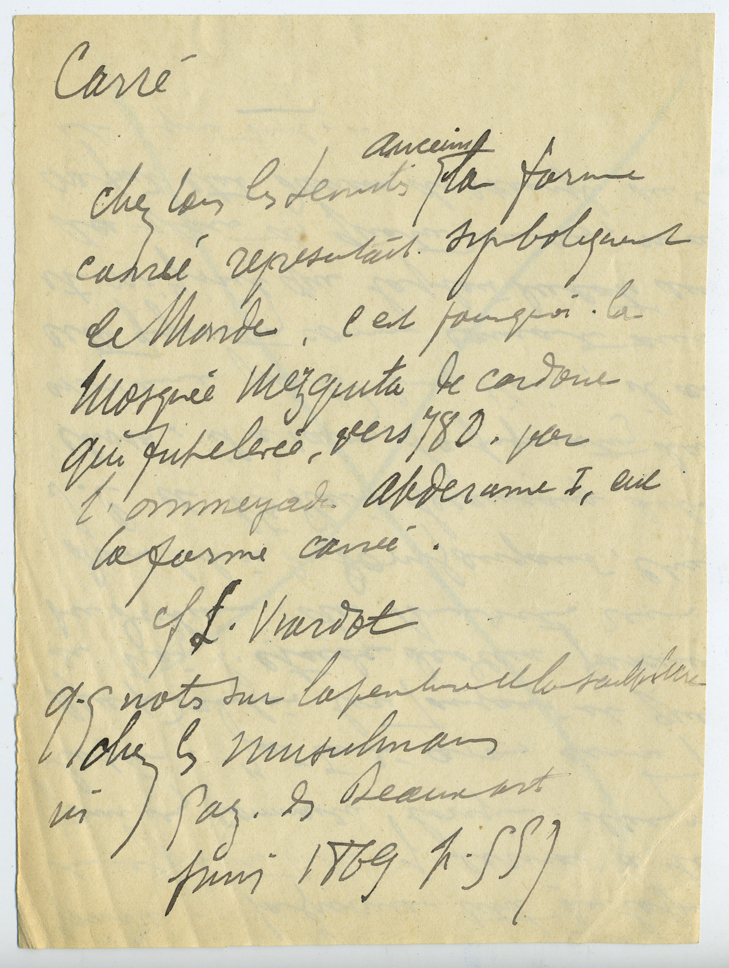 Carré
anciens
chez tous les semites la forme
carrée representait symboliquement
le Monde, c'est pourquoi la
Mosquée Mezquita de cordoue
qui fut elevée, vers 780. par
l'ommeyade Abderame I, eut
la forme carrée.
cf L. Viardot
qq nots sur la peinture et la sculpture
chez les musulmans
in Gaz. des Beaux art
juin 1869 p. 557